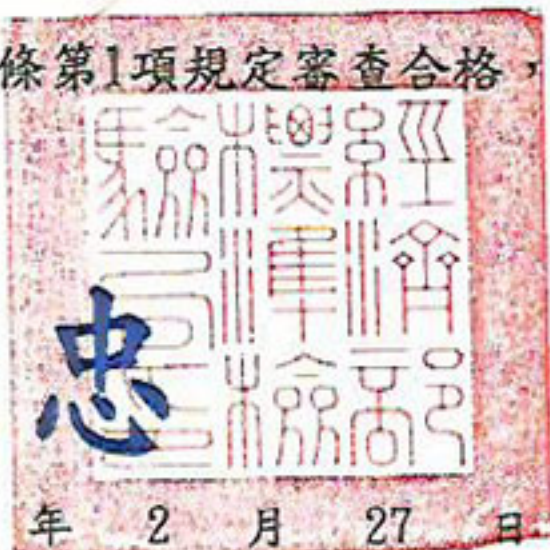 條第1項規定審查合格，
經濟部
標準檢
驗局印
忠
年 2 月 27 日